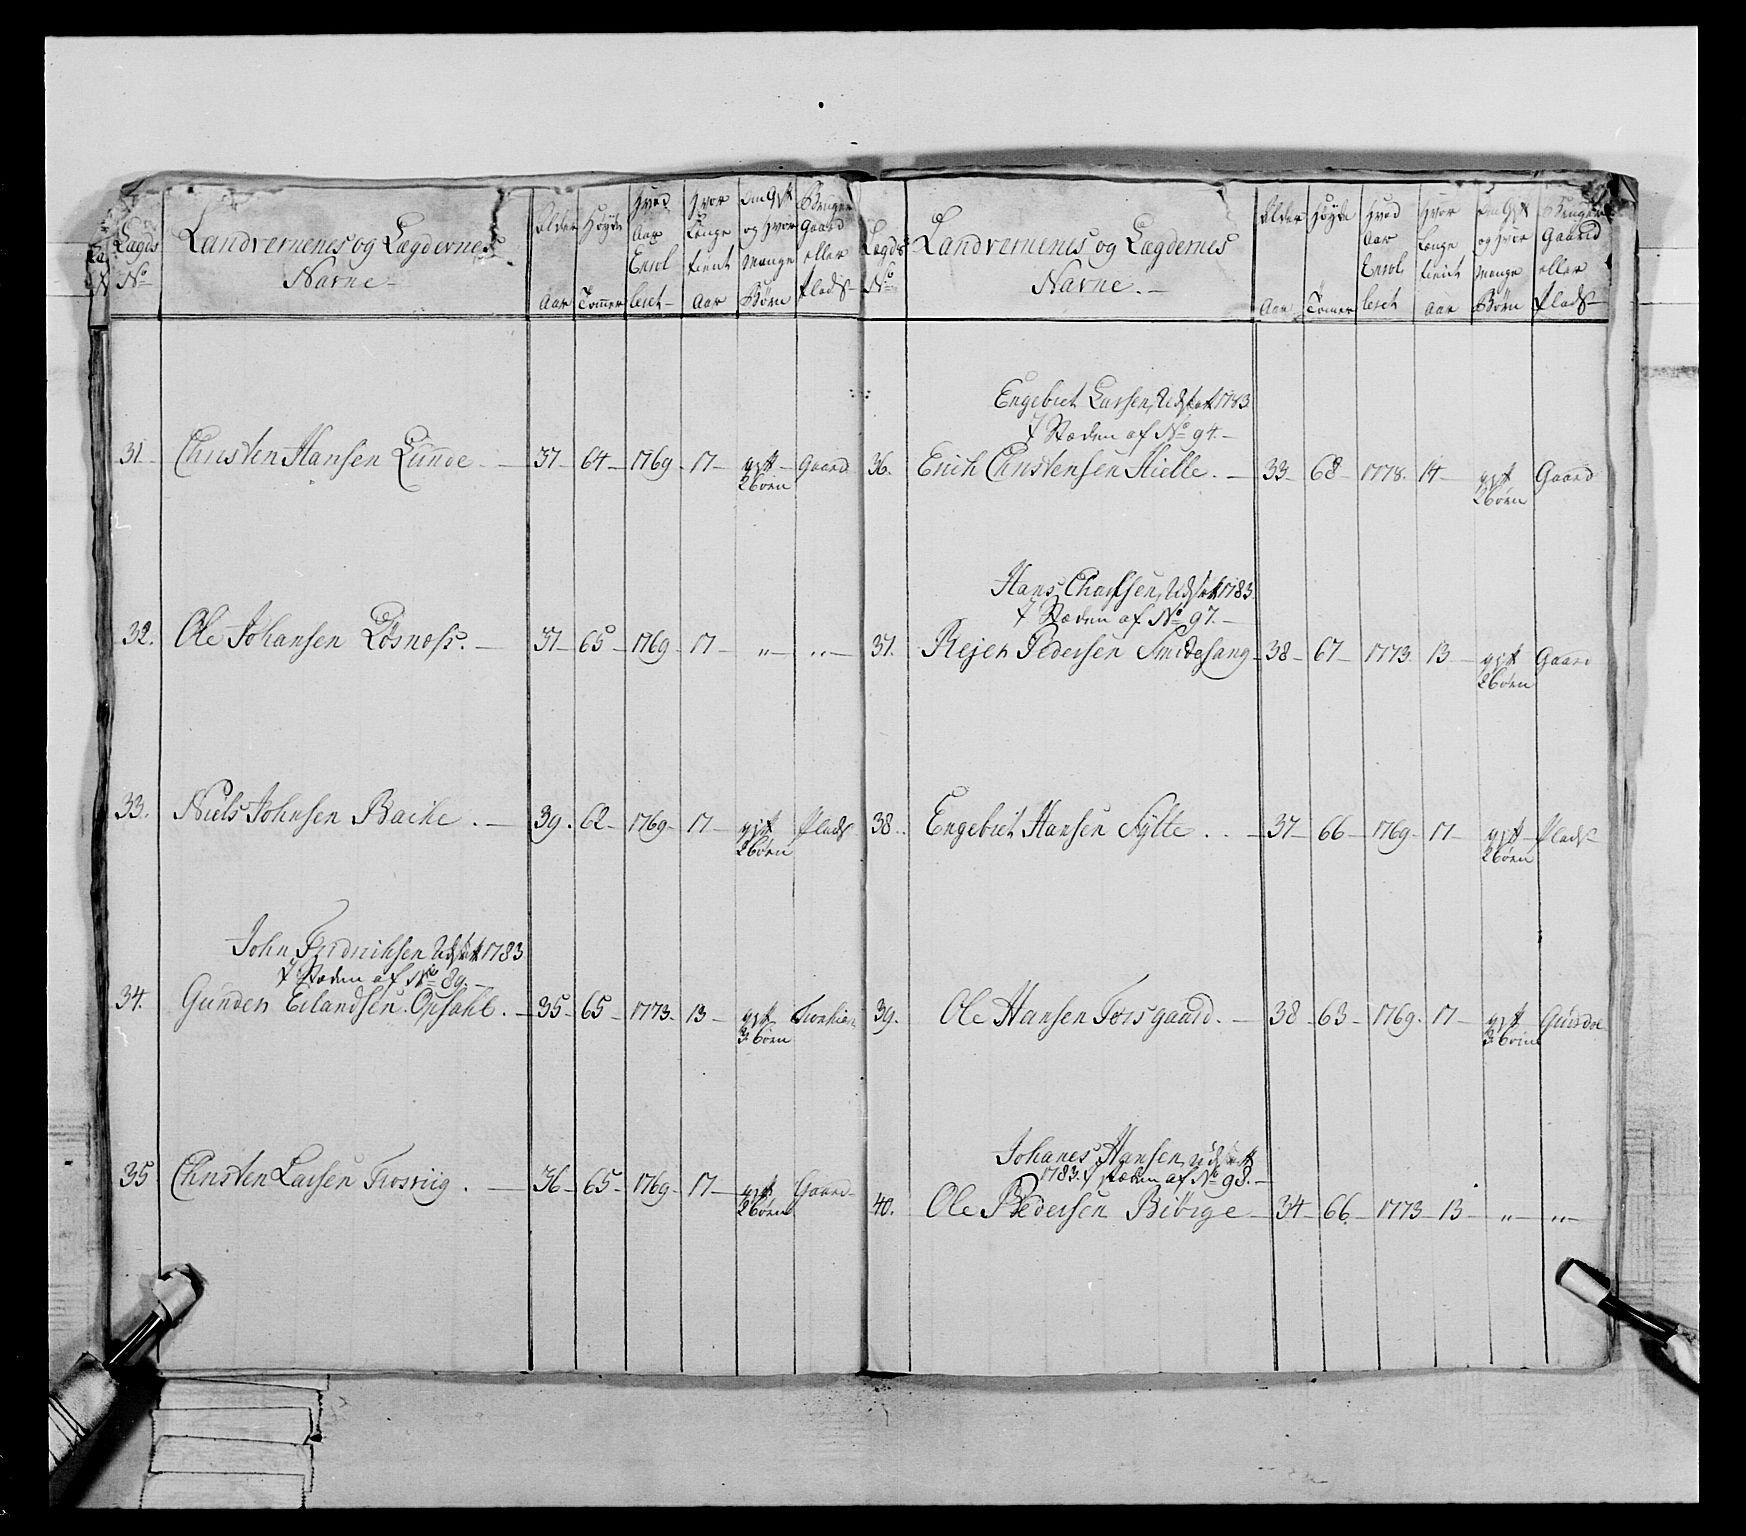 Lægds No Landvernenes og Lægdernes Navne Alder Aar Høyde Tommer Hvad Aar Enrolleret Hvor Længe tient Aar Om Gift og Hvor Mange Børn Bruger Gaard eller Plads
31. Christen Hansen Lunde. 37 64 1769 17 gift 2 børn Gaard
32. Ole Johansen Løsnoss. 37 65 1769 17 " "
33. Niels Johnsen Bache. 39. 62 1769 17 gift 2 børn Plads
John Fredrichsen Udsat 1783
I Stæden af No 89.
34. Gunder Erlandsen Opsahl. 35 65 1773 13 gift 3 børn
35 Christen Larsen Frosviig. 36 65 1769 17 gift 2 børn Gaard
Lægds No Landvernenes og Lægdernes Navne. Alder Aar Høyde Tomer Hvad Aar Enrolleret Hvor Længe tient Aar Om Gift og Hvor Mange Børn Bruger Gaard eller Plads
Engebret Larsen, Udsat 1783
I Stæden af No 94.
36. Erich Christensen Hielle. 33 68 1778. 14 gift 2 børn Gaard
Hans Udsat 1783.
I Stæden af No 97.
37. Rejer Pedersen Smedesang 38 67 1773 13 gift 2 børn Gaard
38. Engebret Hansen Fylte. 37 66 1769 17 gift 2 børn Plads
39. Ole Hansen Forsgaard. 38 63 1769. 17 gift 3 børn
Johanes Hansen, Udsatt
1783. I Stæden af No 98.
40. Ole Pedersen Biörge 34 66 1773 13 " "